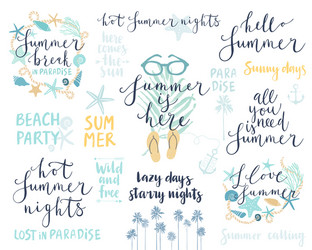 hot summer nights
Summer
break
IN PARADISE
here
comes
the
sun
hello
summer
Sunny days
PARA
DISE
Summer
is
here
BEACH
PARTY
SUM
MER
all
you
is need
Summer
hot
Summer
nights
wild
and
free
Lazy days
starry nights
I love
Summer
LOST IN PARADISE
Summer calling